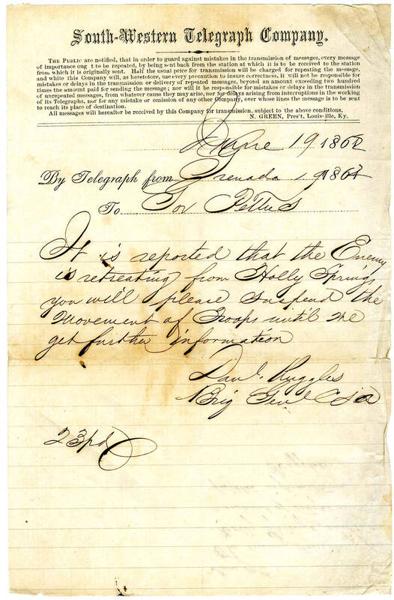 South-Western Telegraph Company.
The Public are notified, that in order to guard against mistakes in the transmission of messages, every message
of importance ought to be repeated, by being sent back from the station at which it is to be received to the station
from which it is originally sent. Half the usual price for transmission will be charged for repeating the message,
and while this Company will, as heretofore, use every precaution to insure correctness, it will not be responsible for
mistakes or delays in the transmission or delivery of repeated messages, beyond an amount exceeding two hundred
times the amount paid for sending the message; nor will it be responsible for mistakes or delays in the transmission
of unrepeated messages, from whatever cause they may arise, nor for delays arising from interruptions in the working
of its Telegraphs, nor for any mistake or omission of any other Company, over whose lines the message is to be sent
to reach its place of destination.
All messages will hereafter be received by this Company for transmission, subject to the above conditions.
N. GREEN, Pres't, Louis-ille, Ky.
June 19 1862
By Telegraph from Grenada 19 1862
To Gov Pettus
It is reported that the Enemy
is retreating from Holly Springs
you will please suspend the
Movement of Troops until we
get further information
Danl. Ruggles
Brig Genl C S A
23pd